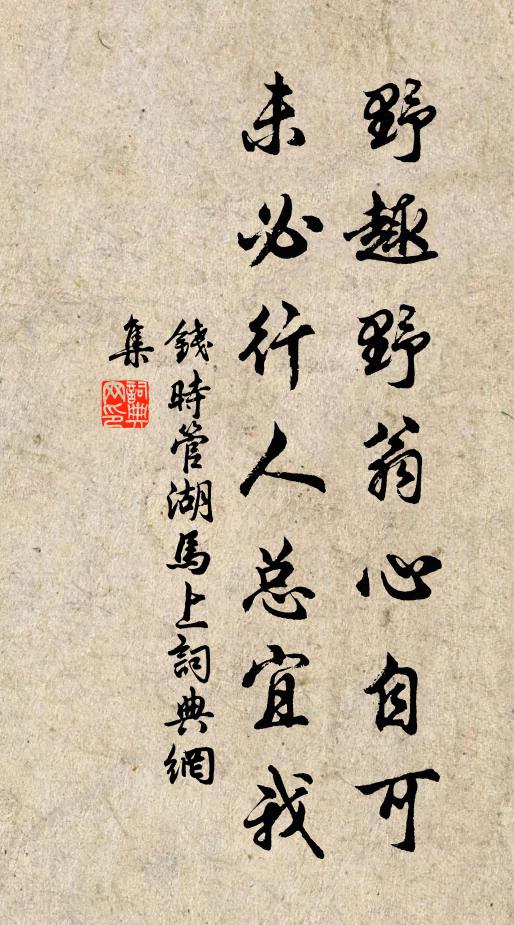 野趣野翁心自可
未必行人总宜我
錢時管湖馬上詞典網
集
詞典
网印